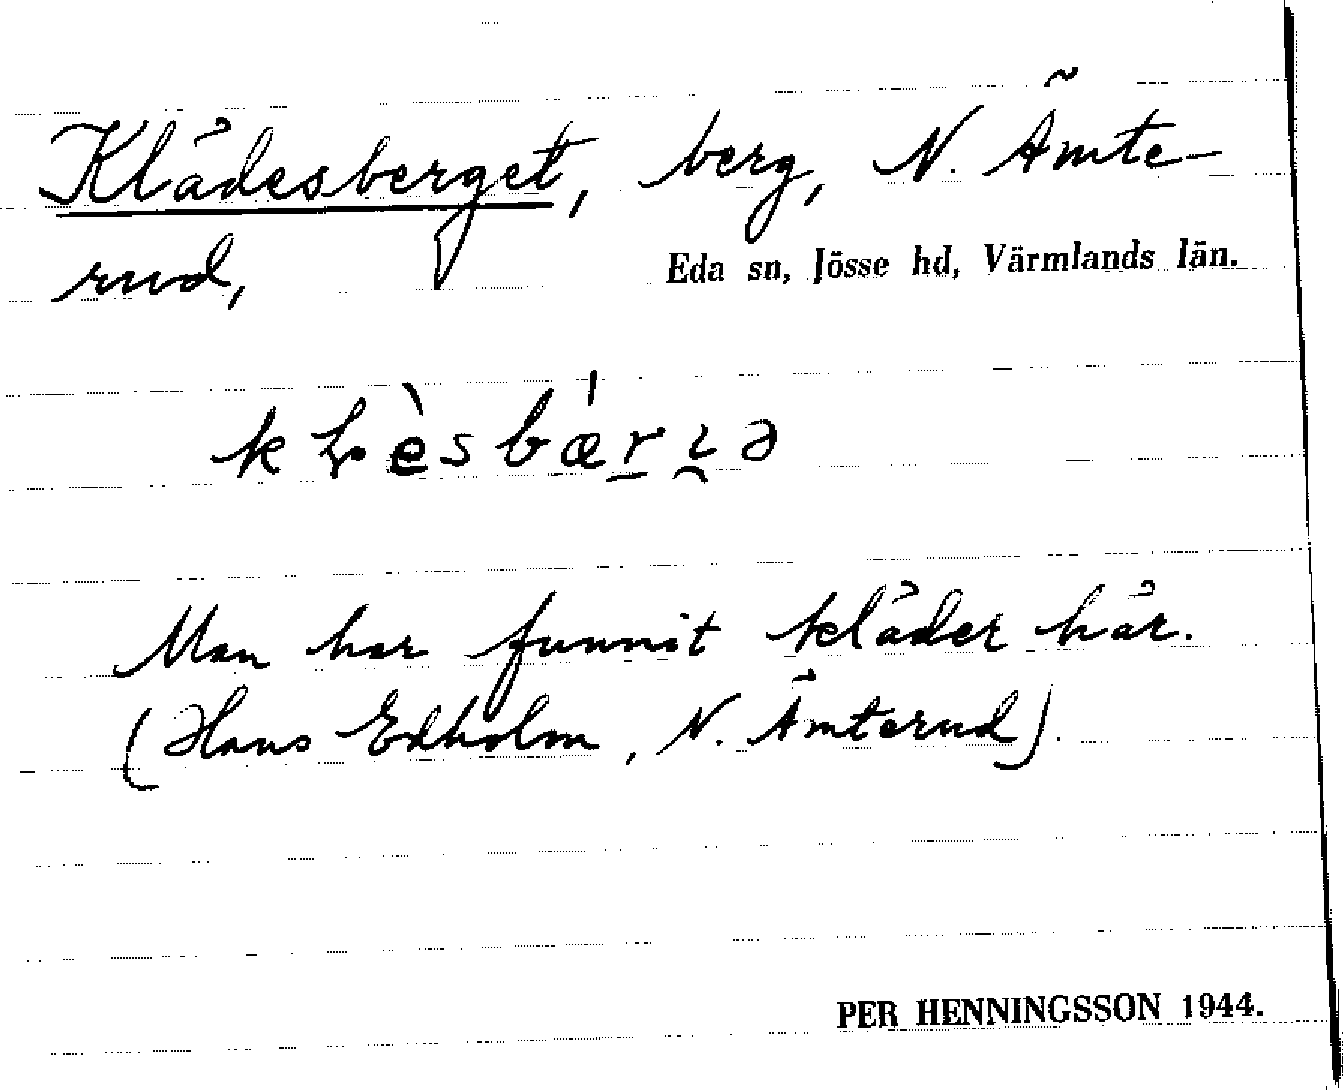 Klädesberget, berg, N. Ämte-
rud,
Eda sn, Jösse hd, Värmlands län.
Man har funnit kläder här.
(Hans Edholm, N. Ämterud).
PER HENNINGSSON 1944.